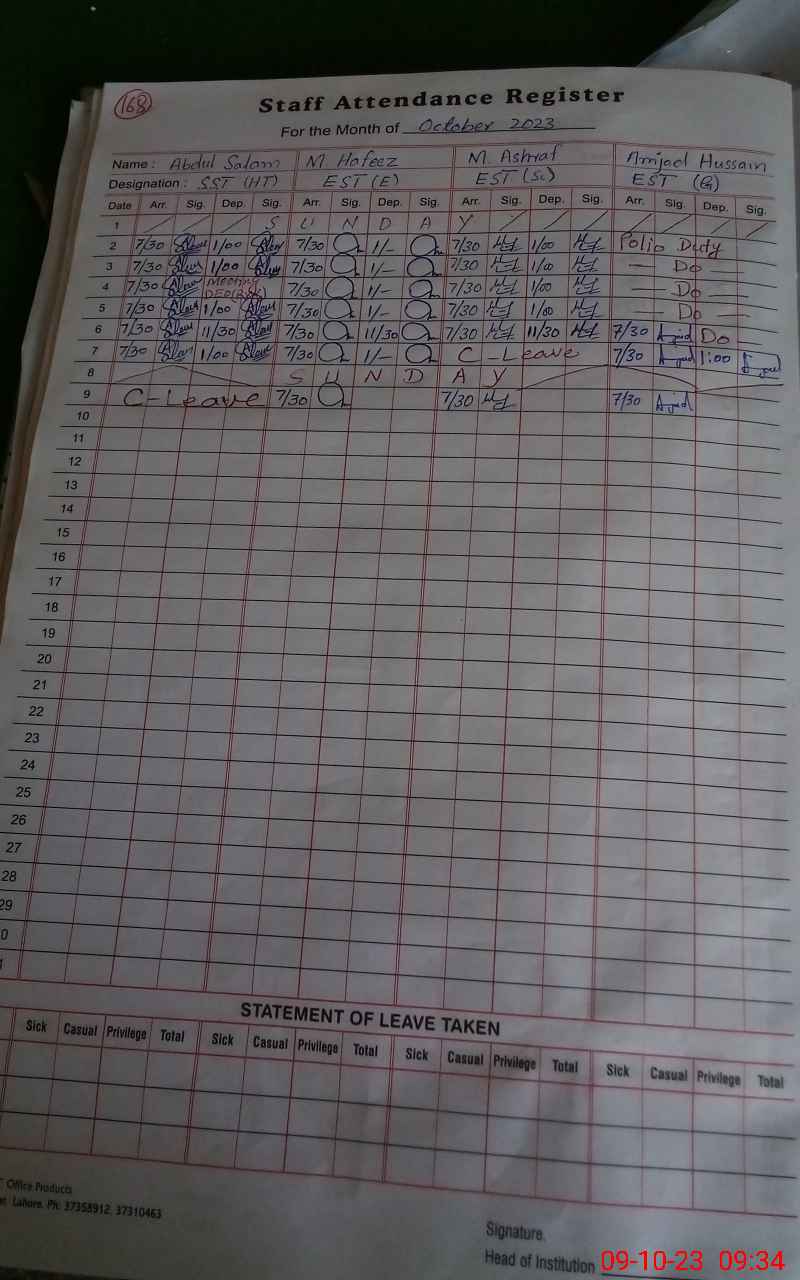 168
Staff Attendance Register
For the Month of October 2023
Name : Abdul Salam M. Hafeez M. Ashraf Amjad Hussain
Designation : SST (HT) EST (E) EST (Sc) EST (G)
Date Arr. Sig. Dep. Sig. Arr. Sig. Dep. Sig. Arr. Sig. Dep. Sig. Arr. Sig. Dep. Sig.
1 S U N D A Y
2 7/30 1/00 7/30 1/- 7/30 1/00 Polio Duty
3 7/30 1/00 7/30 1/- 7/30 1/00 — Do —
4 7/30 Meeting 7/30 1/- 7/30 1/00 — Do —
5 7/30 1/00 7/30 1/- 7/30 1/00 — Do —
6 7/30 11/30 7/30 11/30 7/30 11/30 7/30 Amjad Do
7 7/30 1/00 7/30 1/- C-Leave 7/30 Amjad 1:00 Amjad
8 S U N D A Y
9 C-Leave 7/30 7/30 7/30 Amjad
10
11
12
13
14
15
16
17
18
19
20
21
22
23
24
25
26
27
28
29
0
STATEMENT OF LEAVE TAKEN
Sick Casual Privilege Total Sick Casual Privilege Total Sick Casual Privilege Total Sick Casual Privilege Total
Office Products
Lahore. Ph: 37358912, 37310463
Signature.
Head of Institution
09-10-23 09:34